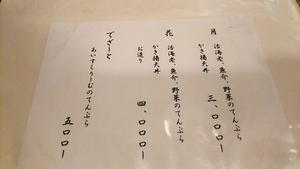 月
活海老、魚介、野菜のてんぷら
かき揚天丼
三、〇〇〇ー
花
活海老、魚介、野菜のてんぷら
かき揚天丼
お造り
四、〇〇〇ー
でざーと
あいすくりーむのてんぷら
五〇〇ー